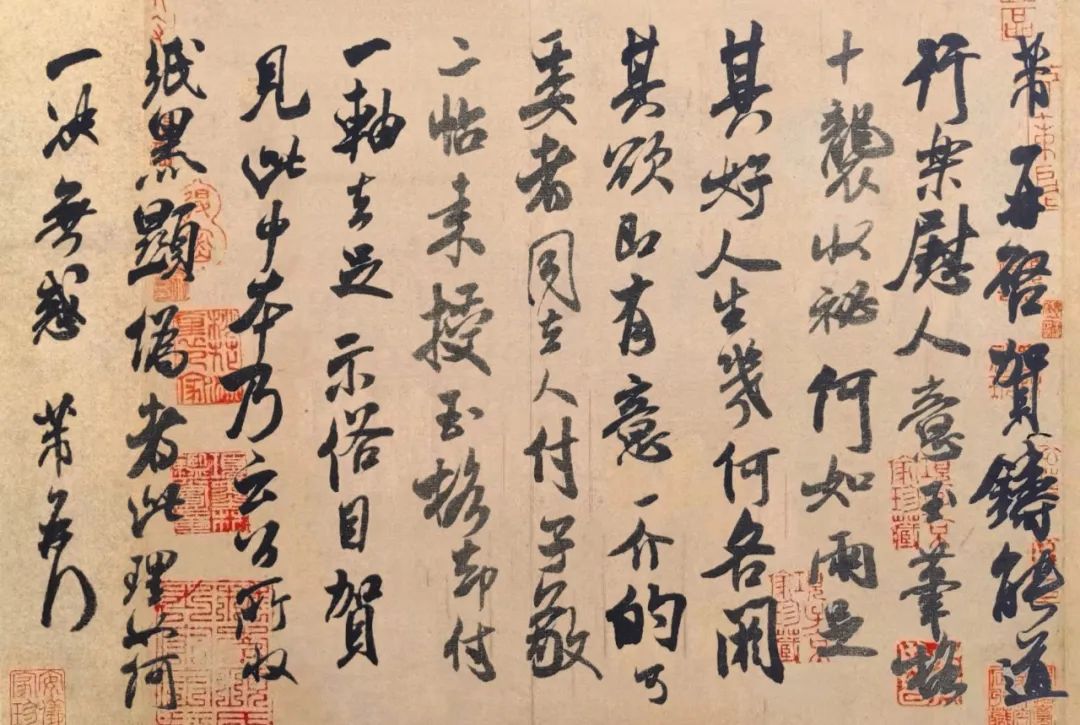 芾再啓賀鑄能道
行樂慰人意玉筆格
十襲收祕何如兩足
其好人生幾何各閼
其欲即有意一介的可
委者同去人付子敬
二帖来授玉格却付
一軸去足示俗目賀
見此中本乃云公所收
紙黑顯偽者此理如何
一決無惑 芾頓首